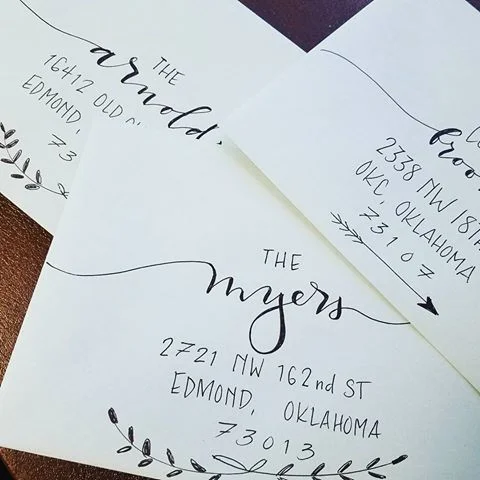 THE
arnold
16412 OLD
EDMOND,
73
2338 NW 18TH
OKC, OKLAHOMA
73107
THE
myers
2721 NW 162nd ST
EDMOND, OKLAHOMA
73013